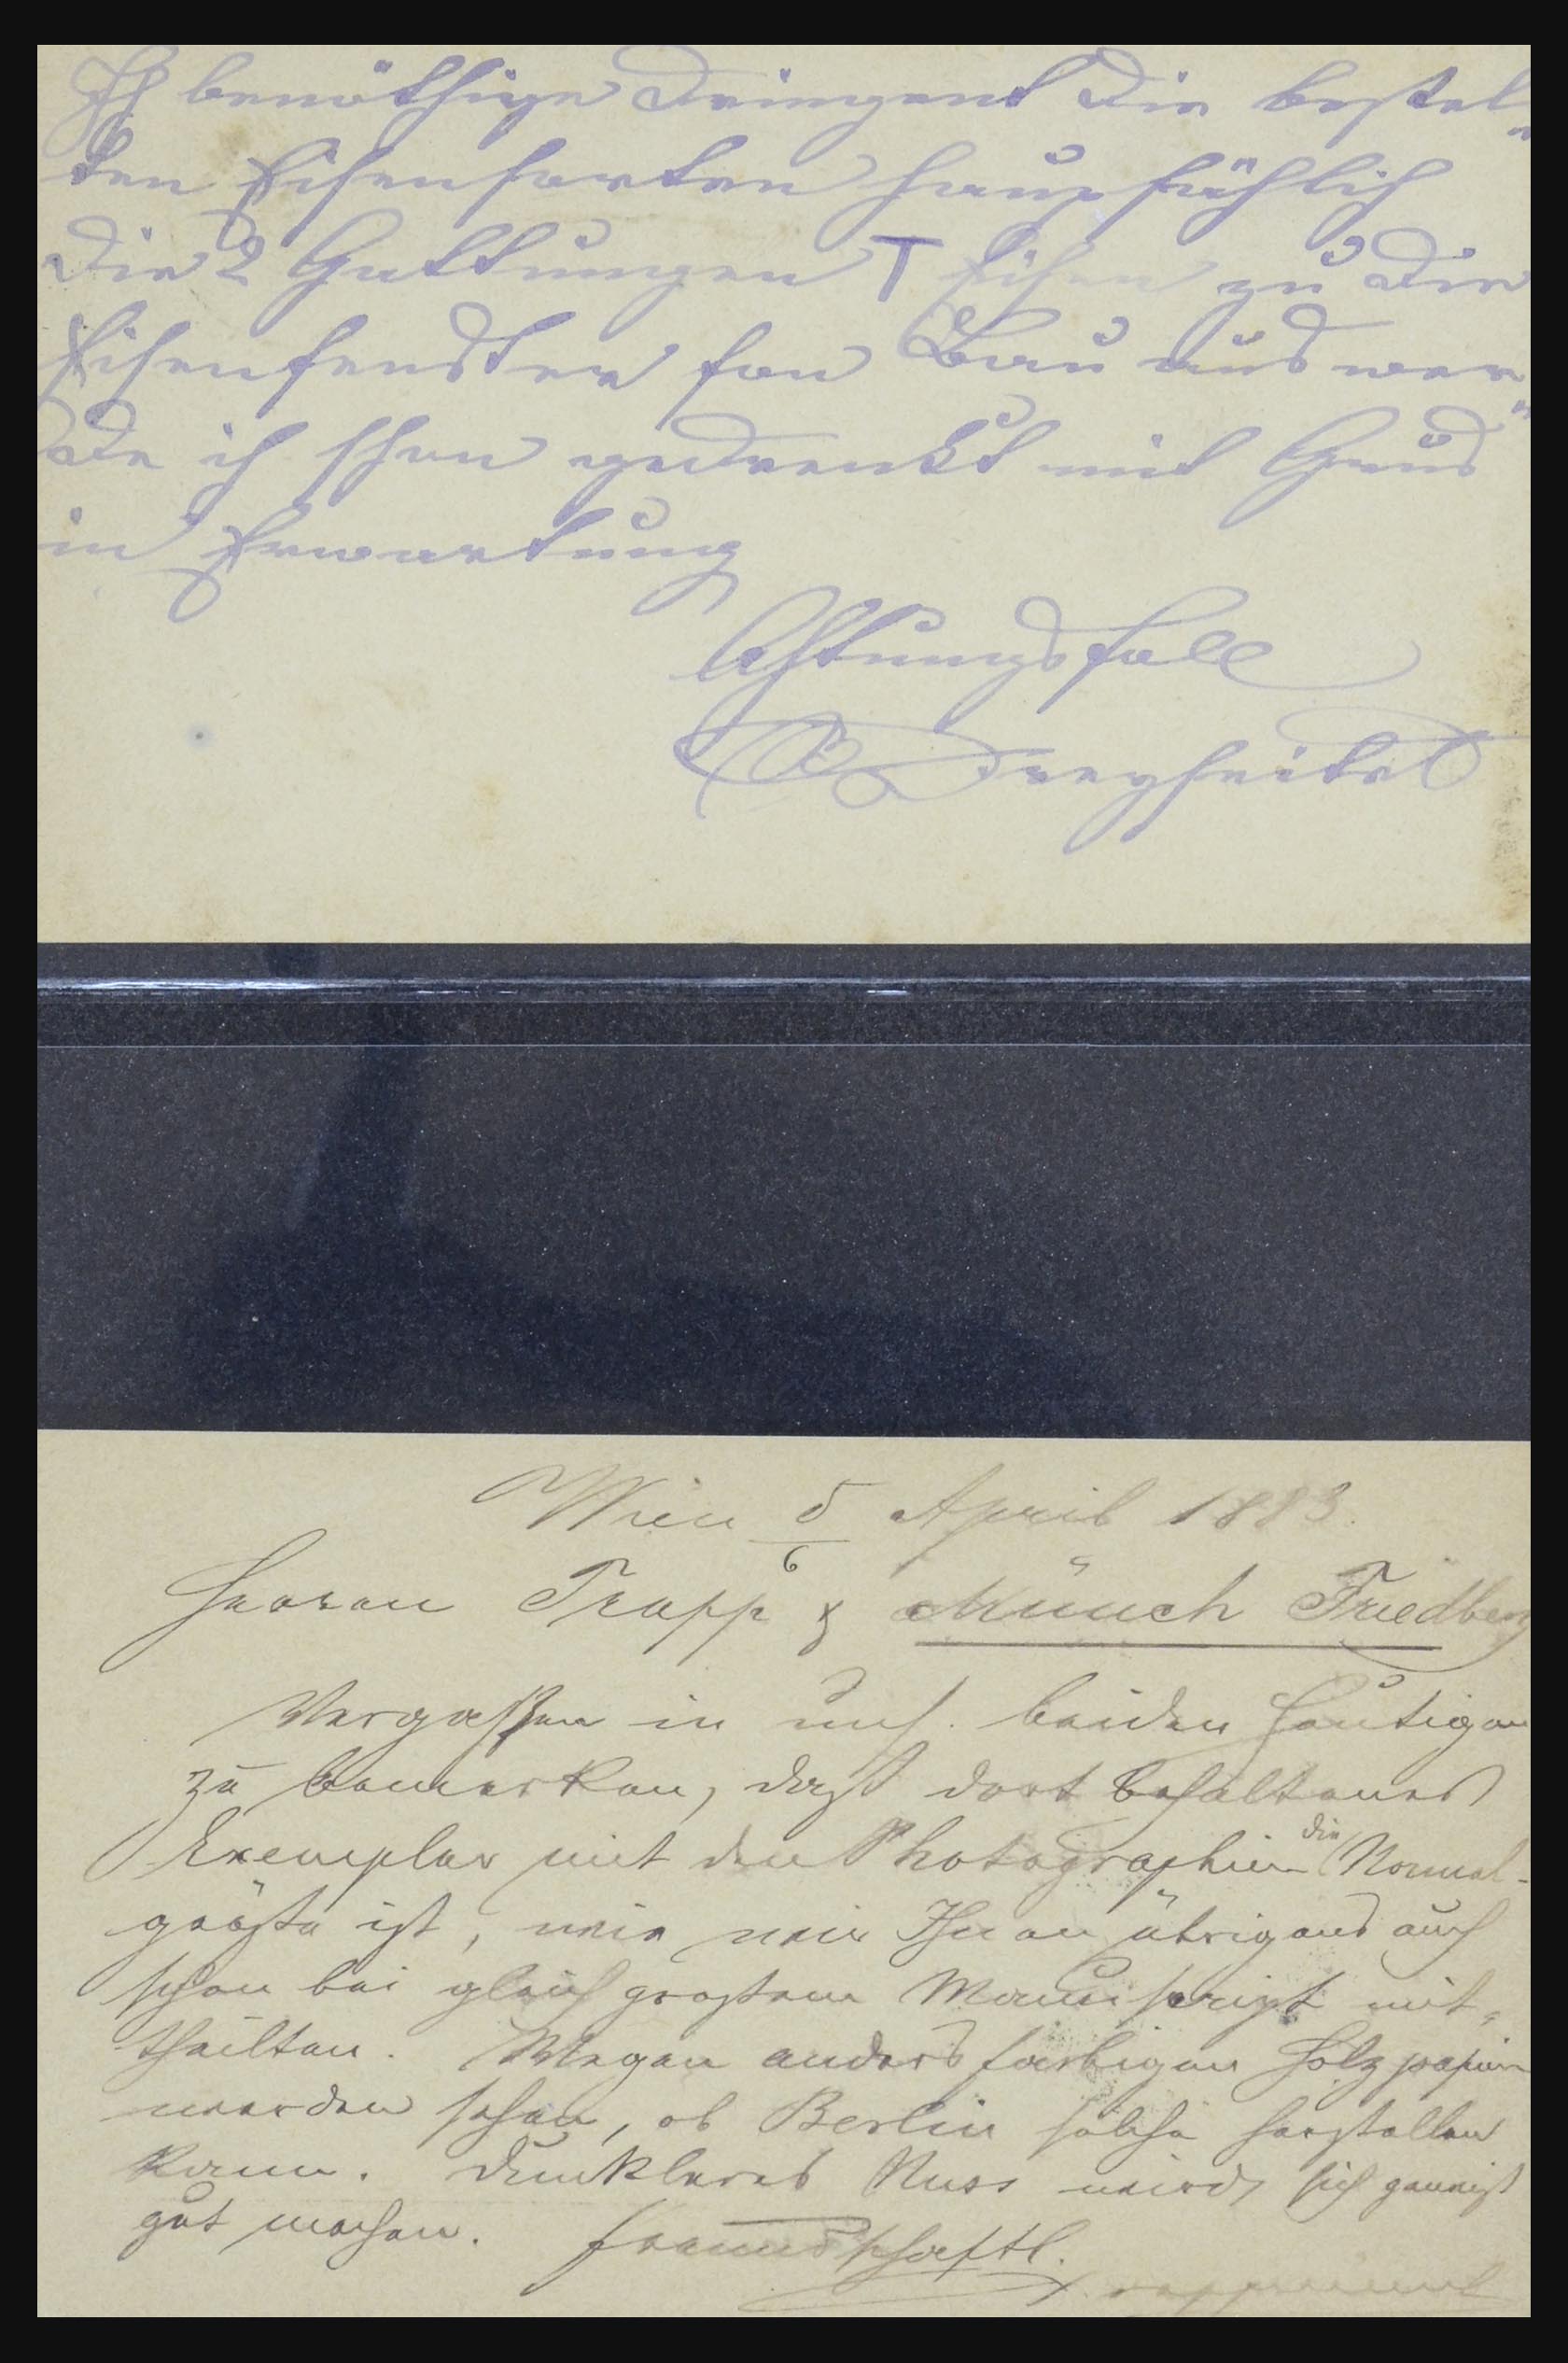 Ich benöthige dringent die bestel-
ten Eisensorten haupsächlich
die 2 Gattungen T Eisen zu die
Eisenfenster fon Bau aus wer-
de ich schon gedrenkt mit Grus
in Erwartung
Achtungsfoll
Dreyseitel
Wien 5/6 April 1883.
Herren Trapp & Münch Friedberg
Vergaßen in uns. beiden Heutigen
zu bemerken, daß dort behaltenes
Exemplar mit den Photographien die Normal-
größe ist, wie wir Ihnen übrigens auch
schon bei gleich großem Manuscript mit-
theilten. Wegen anders farbigen Holzpapier
werden sehen, ob Berlin solche herstellen
kann. Dunkleres Nuss wird sich gewiß
gut machen. freundschaftl.